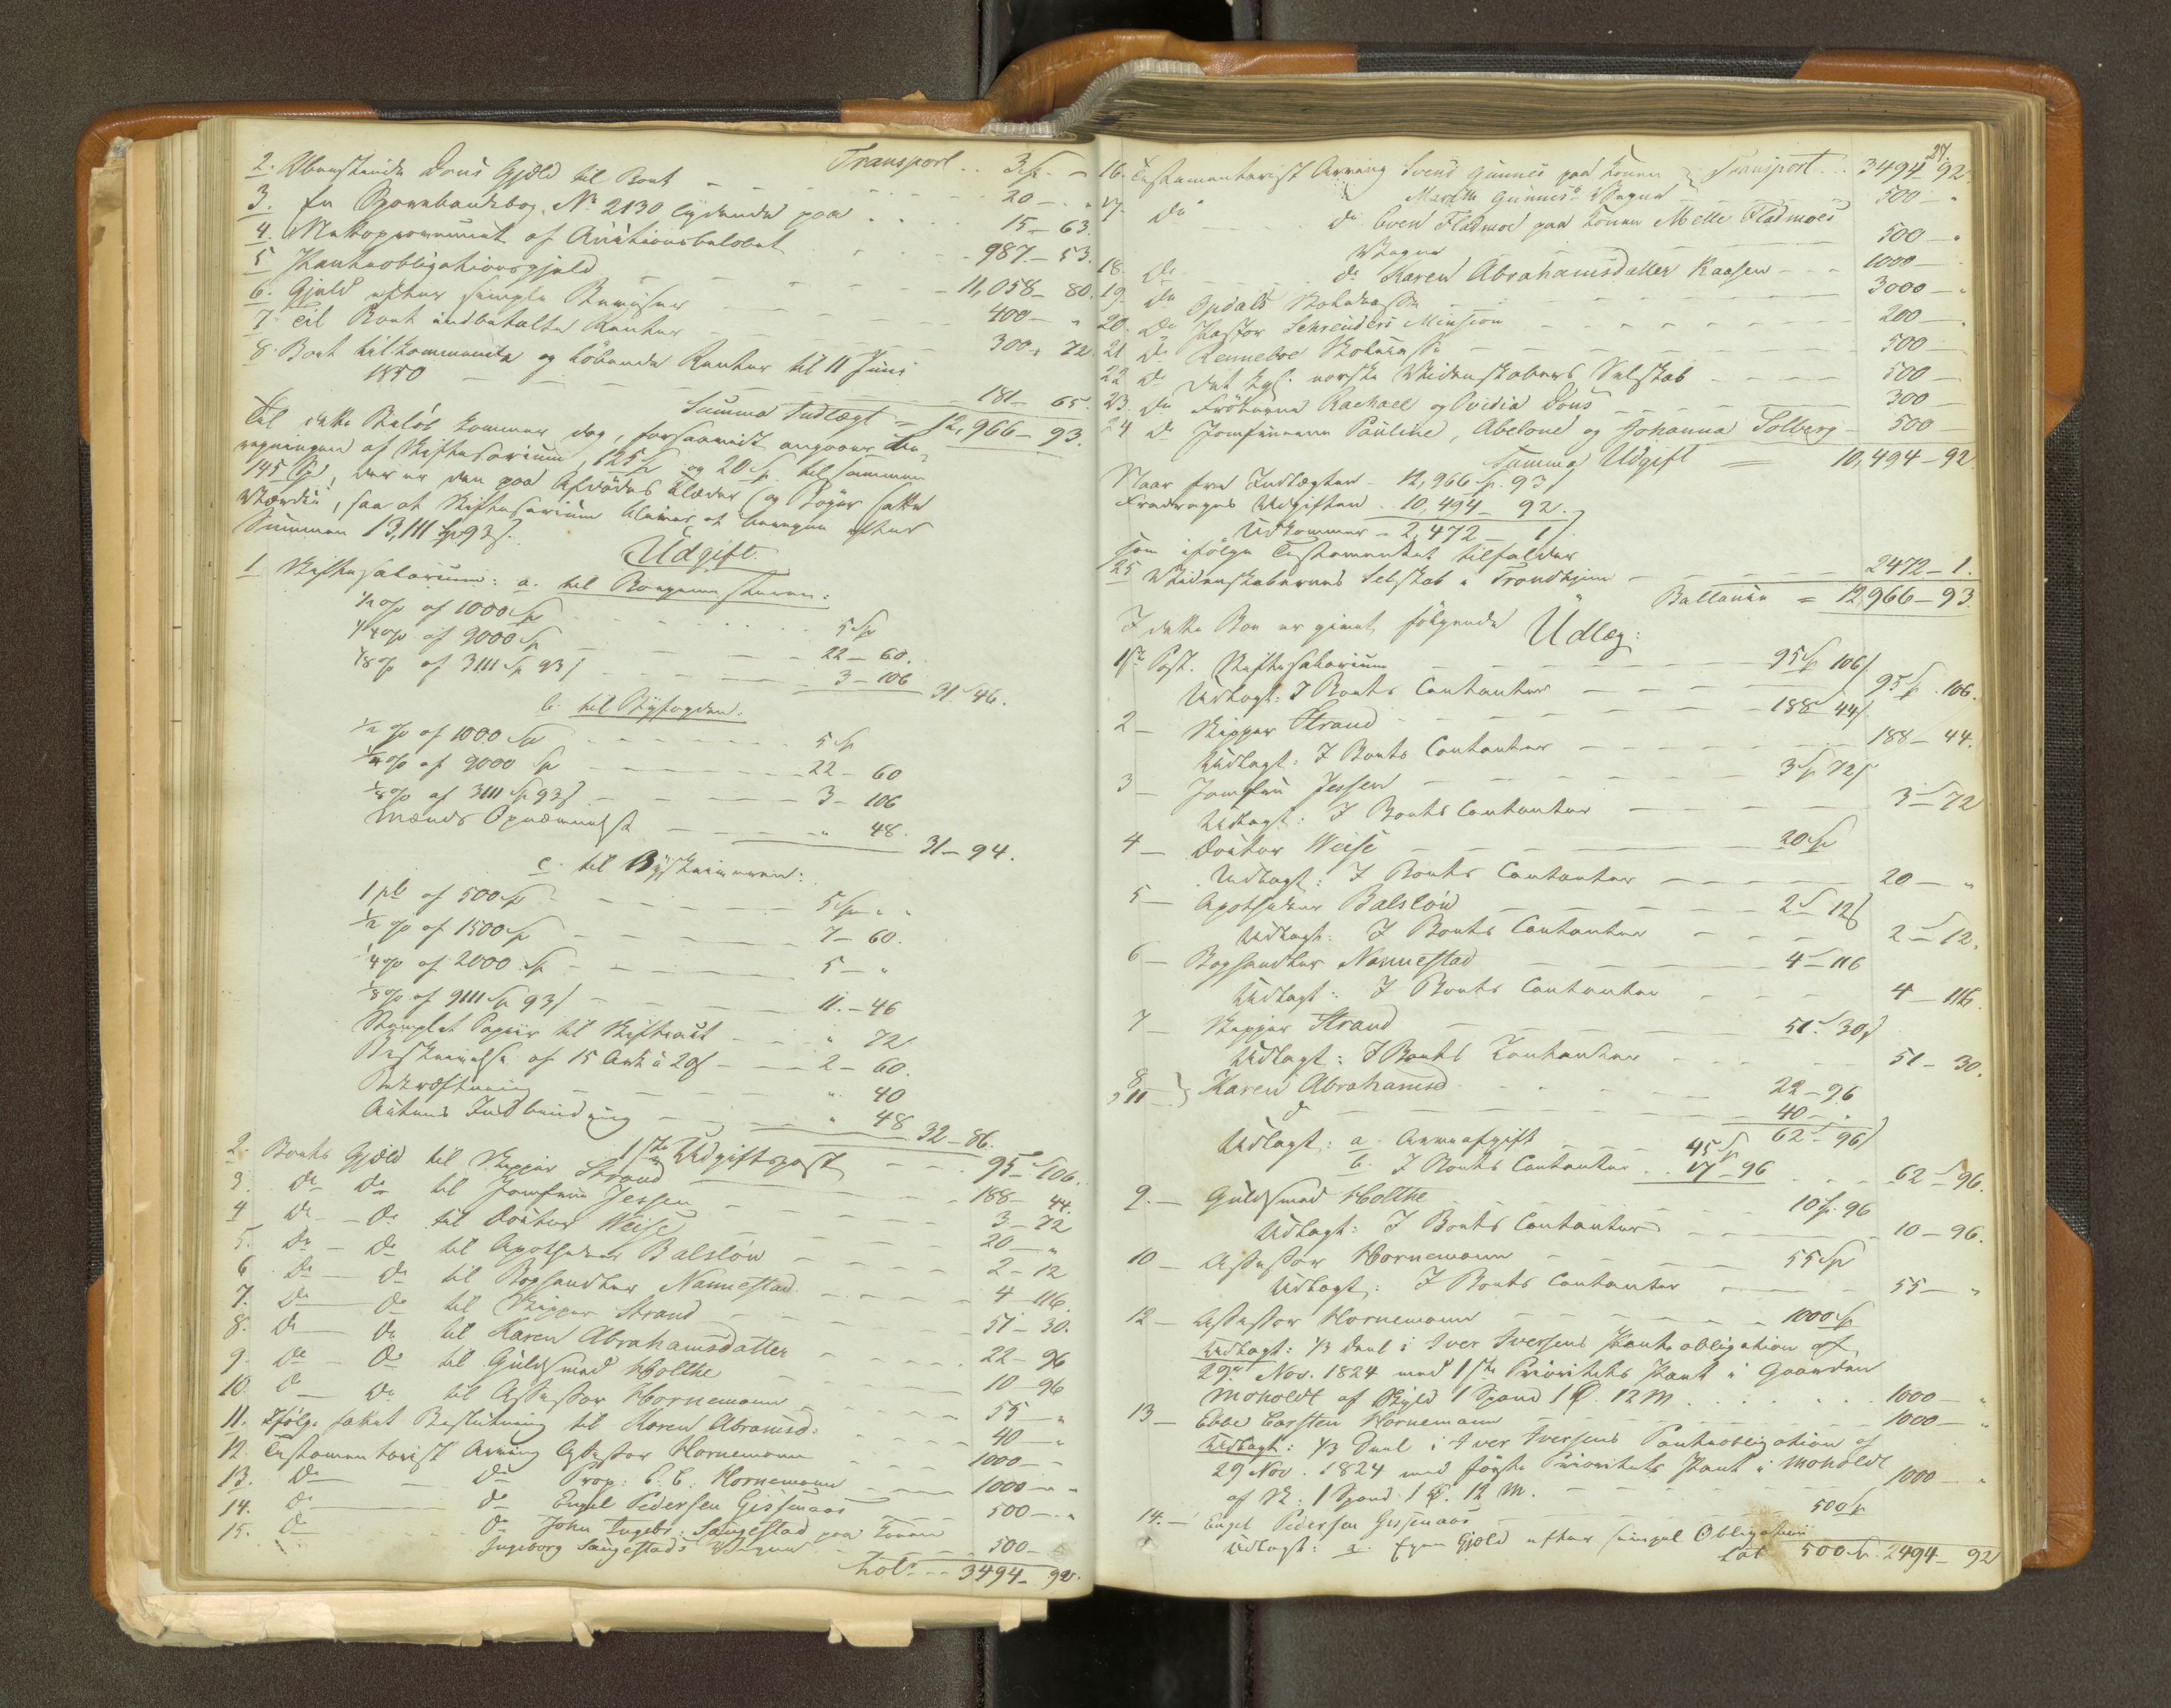 Transport .. 3 Sp. – "
2. Ovenstaaende Dons Gjæld til Boet – – – 20 – "
3. En Sparebanksbog No 2130 lydende paa . . . 15 – 63.
4. Nettoprovenuet af Auctionsbeløbet – – 987 – 53.
5 Panteobligationsgjæld – – – 11,058 – 80.
6. Gjæld efter simple Beviser – – – 400 – "
7 til Boet indbetalte Renter – – – 300 – 72.
8. Boet tilkommende og løbende Renter til 11 Juni
1850 – – – 181 – 65.
Summa Indtægt = 12,966 – 93.
Til dette Beløb kommer dog, forsaavidt angaaer Be-
regningen af Skiftesalarium, 125 Sp og 20 Sp tilsammen
145 Sp, der er den paa Afdødes Klæder og Bøger satte
Værdie, saa at Skiftesalarium bliver at beregne efter
Summen 13,111 Sp 93 s.
Udgift.
1 Skiftesalarium: a. til Borgemesteren:
1/2 % af 1000 Sp – – – 5 Sp
1/4 % af 9000 Sp – – – 22 – 60.
1/8 % af 3111 Sp 93 s – – – 3 – 106 31 – 46.
b. til Byfogden.
1/2 % af 1000 Sp – – – 5 Sp
1/4 % af 9000 Sp – – – 22 – 60
1/8 % af 3111 Sp 93 s – – – 3 – 106
Mænds Opnævnelse – – – " 48. 31 – 94.
c. til Byskriveren:
1 pCt af 500 Sp – – – 5 Sp – "
1/2 % af 1500 Sp – – – 7 – 60.
1/4 % af 2000 Sp – – – 5 – "
1/8 % af 9111 Sp 93 s – – – 11. – 46
Stemplet Papiir til Skiftebrevet – – " 72
Beskrivelse af 15 Ark à 20 s – – 2 – 60.
Bekræftning – – – " 40
Actens Indbinding – – – " 48 32 – 86.
1ste Udgiftspost – – – 95 – 106.
2. Boets Gjæld til Skipper Strand – – – 188 – 44.
3. Do Do til Jomfru Jessen – – – 3 – 72
4 Do – Do til Doctor Weise – – – 20 – "
5. Do – Do til Apotheker Balslóu – – – 2 – 12
6 Do – Do til Boghandler Nannestad – – – 4 – 116.
7. Do – Do til Skipper Strand – – – 51 – 30.
8. Do – Do til Karen Abrahamsdatter – – – 22 – 96
9 Do – Do til Guldsmed Holthe – – – 10 – 96
10. Do – Do til Assessor Hornemann – – – 55 – "
11. Ifølge fattet Beslutning til Karen Abramsd: – – 40 – "
12. Testamentarisk Arving Assessor Hornemann – – – 1000 – "
13. Do – Do Prop: E. C. Hornemann – – – 1000 – "
14. Do – Do Engel Pedersen Gissenaas – – – 500 – "
15. Do – Do John Ingebr: Saugestad paa Konen
Ingeborg Saugestads Vegne – – – 500 –
Lat. – 3494 – 92.
27.
16. Testamentarisk Arving Svend Gunnes paa Konen Transport . . 3494 – 92.
Marith Gunnes's Vegne 500 – "
17. Do – – – Do Even Fladmoe paa Konen Mette Fladmoes
Vegne – – – 500 – "
18. Do – – – Do Karen Abrahamsdatter Kaasen – – 1000 –
19. Do Opdals Skolekasse – – – 3000 – "
20. Do Pastor Schreuders Mission – – – 200 – "
21 Do Renneboe Skolekasse – – – 500 –
22 Do Det kgl. norske Videnskabers Selskab – – – 500 –
23. Do Frøknerne Rachael og Ovidia Dons – – – 300 –
24 Do Jomfruerne Pauline, Abelone og Johanna Solberg – 500 –
Summa Udgift = 10,494 – 92
Naar fra Indtægten – 12,966 Sp. 93 s
Fradrages Udgiften . 10,494 – 92.
Udkommer – 2,472 – 1 s.
som ifølge Testamentet tilfalder
25 Videnskabernes Selskab i Trondhjem – – – 2472 – 1.
Ballance = 12,966 – 93
I dette Boe er giort følgende Udlæg:
1ste Post. Skiftesalarium – – – 95 Sp 106 s
Udlagt: I Boets Contanter – – – 95 Sp. 106.
2 – Skipper Strand – – – 188 – 44 s
Udlagt: I Boets Contanter – – – 188 – 44.
3 – Jomfru Jessen – – – 3 Sp 72 s
Udlagt: I Boets Contanter – – – 3 – 72
4 – Doctor Weise – – – 20 Sp
Udlagt: I Boets Contanter – – – 20 – "
5 – Apotheker Balslóu – – – 2 – 12 s
Udlagt: I Boets Contanter – – – 2 – 12.
6 – Boghandler Nannestad – – – 4 – 116
Udlagt: I Boets Contanter – – – 4 – 116.
7 – Skipper Strand – – – 51 – 30 s
Udlagt: I Boets Contanter – – – 51 – 30.
8 & 11 – } Karen Abrahamsd – – – 22 – 96
Do – – – 40 – "
62 – 96 s
Udlagt: a. Arveafgift – – 45 Sp
b. I Boets Contanter . . 17 – 96 – – 62 – 96.
9. – Guldsmed Holthe – – – 10 Sp. 96
Udlagt: I Boets Contanter – – – 10 – 96.
10 – Assessor Hornemann – – – 55 Sp
Udlagt: I Boets Contanter – – – 55 – "
12 – Assessor Hornemann – – – 1000 Sp
Udlagt: 1/3 Deel i Iver Iversens Panteobligation af
29de Nov. 1824 med 1ste Prioritets Pant i Gaarden
Moholdt af Skyld 1 Spand 1 Ø. 12 M . . . 1000 – "
13 – Ebbe Carsten Hornemann – – – 1000 – "
Udlagt: 1/3 Deel i Iver Iversens Panteobligation af
29 Nov. 1824 med første Prioritets Pant i Moholdt
af Sk: 1 Spand 1 Ø. 12 M. – – – 1000 – "
14. – Engel Pedersen Gissenaas – – – 500 Sp
Udlagt: a. Egen Gjæld efter simpel Obligation
Lat 500 Sp. 2494 – 92